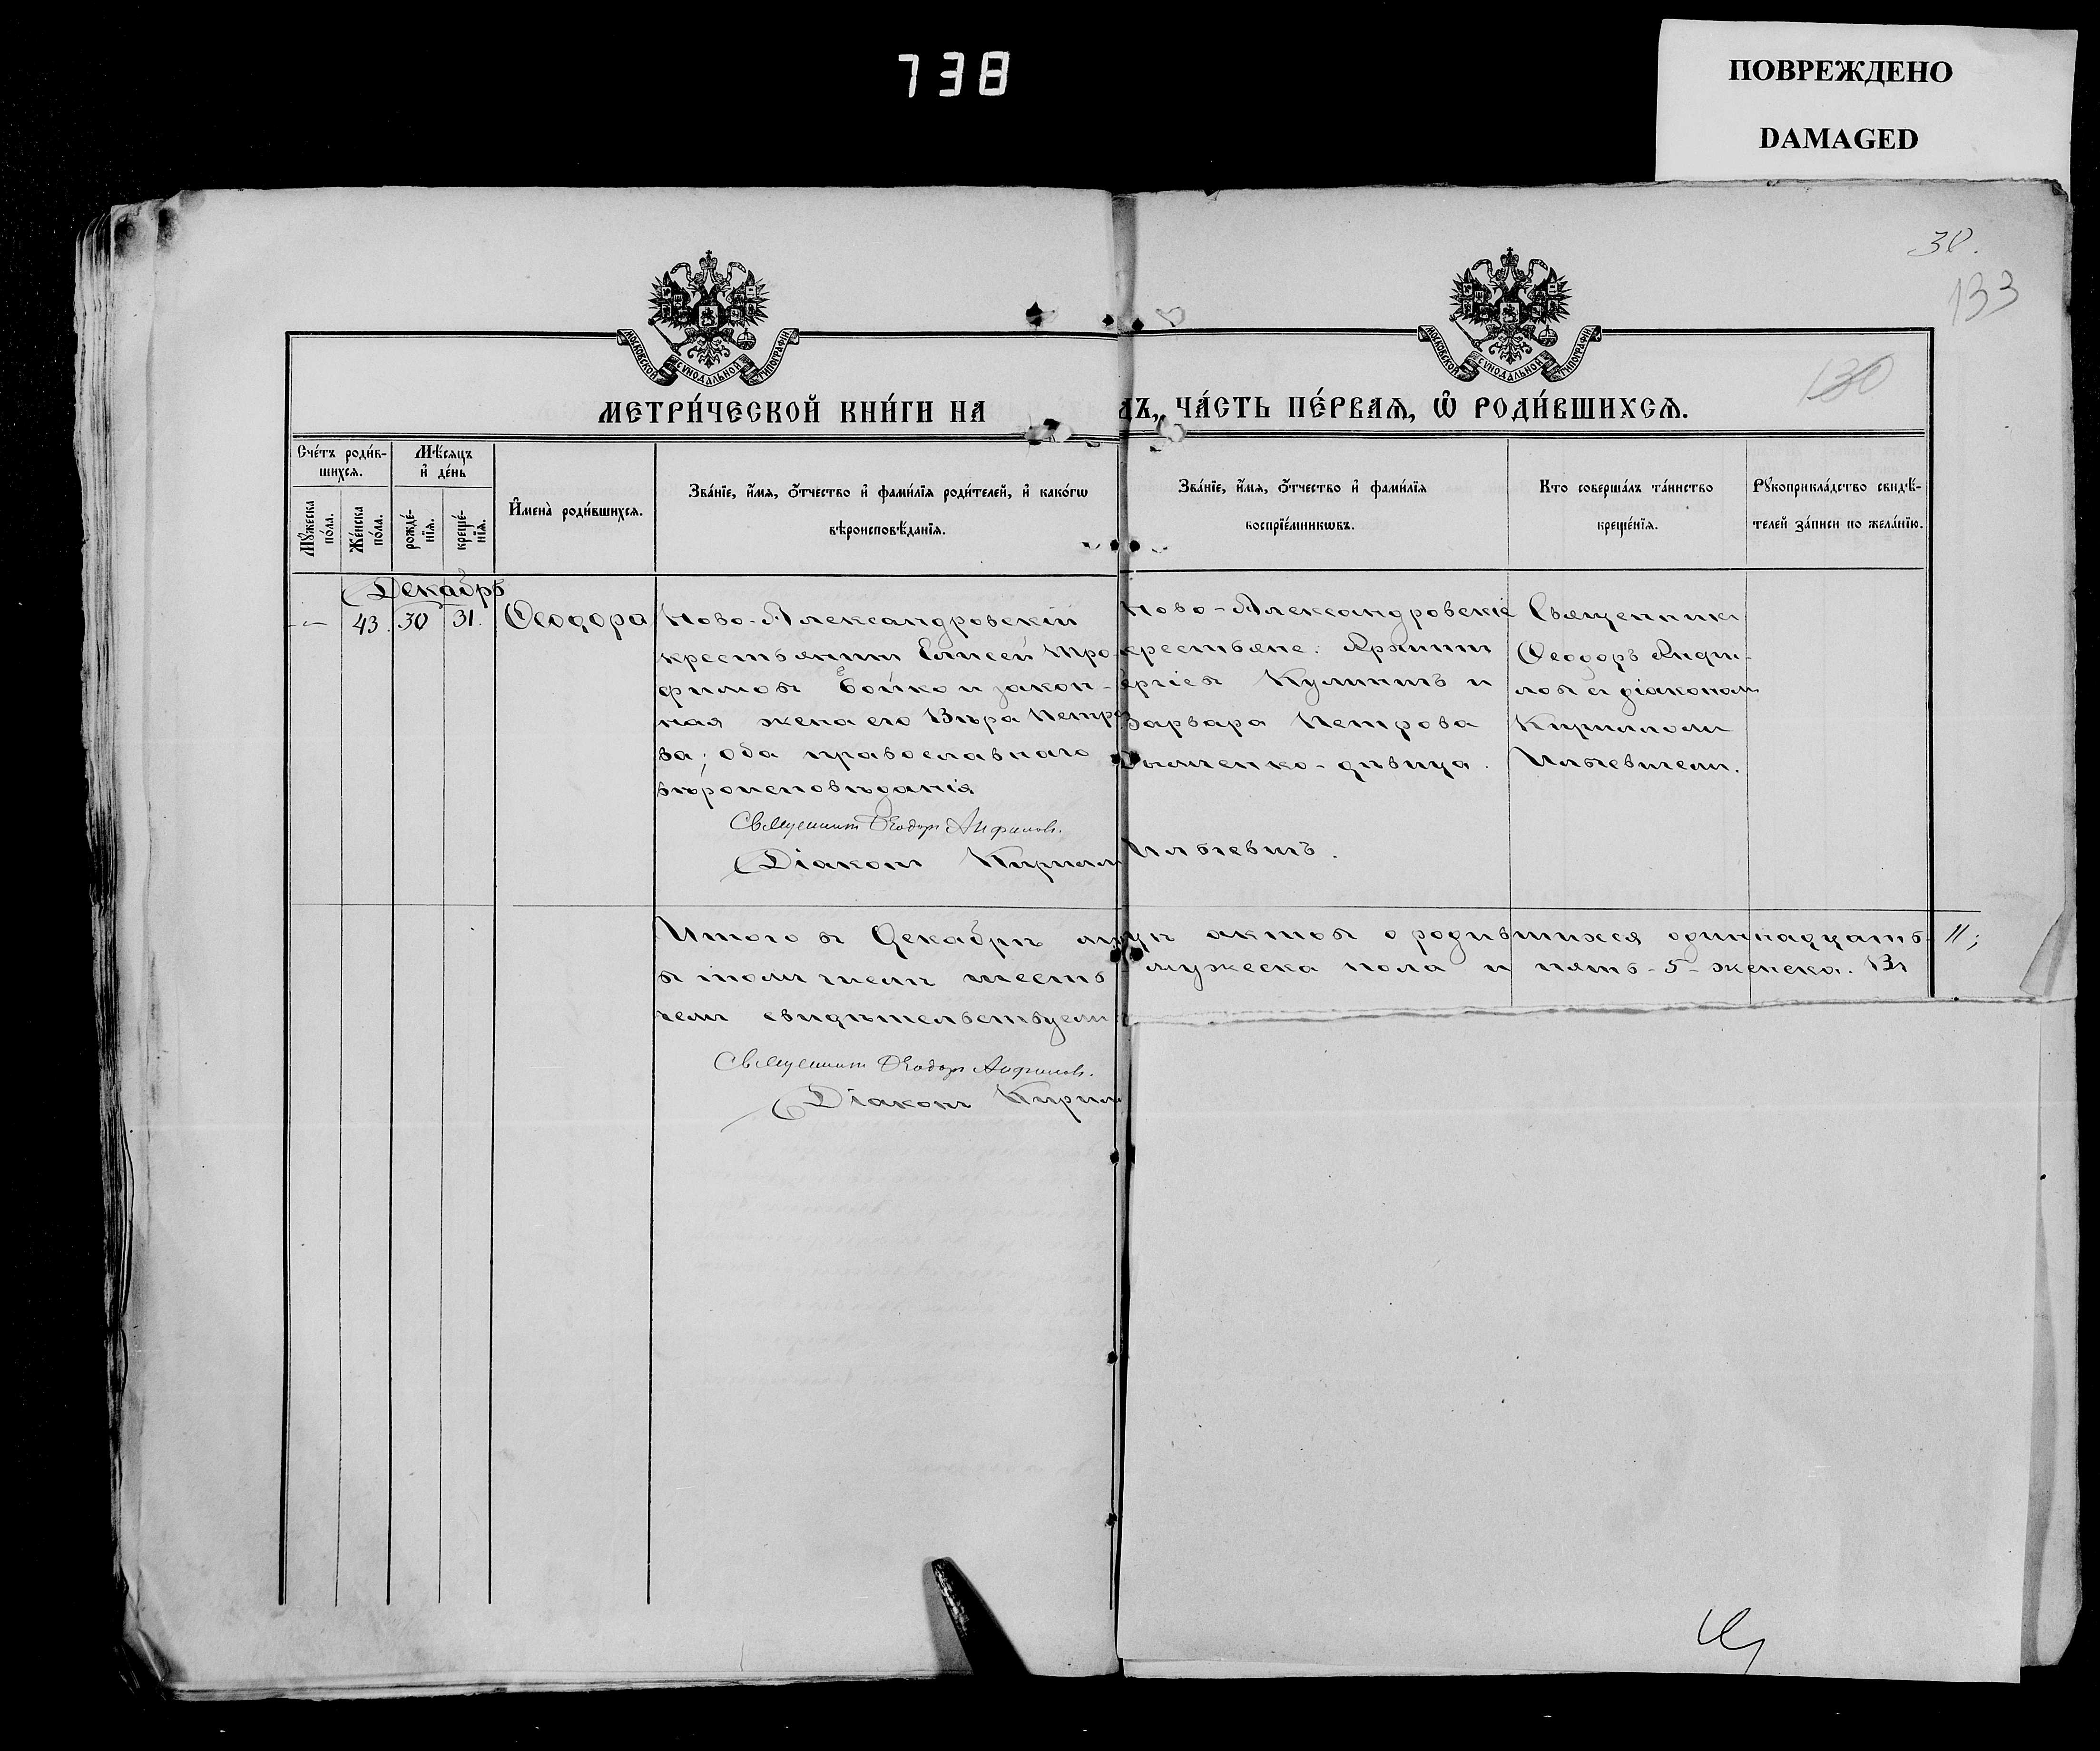 738
ПОВРЕЖДЕНО
DAMAGED
30.
133
130
МОСКОВСКОЙ СѴНОДАЛЬНОЙ ТИПОГРАФІИ
МОСКОВСКОЙ СѴНОДАЛЬНОЙ ТИПОГРАФІИ
МЕТРИ́ЧЕСКОЙ КНИ́ГИ НА ДЪ, ЧА́СТЬ ПЕ́РВАЯ, Ѽ РОДИ́ВШИХСЯ.
Сче́тъ роди́в-
шихся.
Мѣ́сяцъ
и҆ де́нь
Мꙋ́жеска
по́ла.
Же́нска
по́ла.
рожде́-
нїя.
креще́-
нїя.
И҆мена̀ роди́вшихся.
Зва́нїе, и҆́мя, ѻ҆́тчество и҆ фами́лїя роди́телей, и҆ како́гѡ
вѣроисповѣ́данїя.
Зва́нїе, и҆́мя, ѻ҆́тчество и҆ фами́лїя
воспрїе́мникѡвъ.
Кто соверша́лъ та́инство
креще́нїя.
Рꙋкоприкла́дство свидѣ́-
телей за́писи по жела́нїю.
Декабрь
- 43. 30 31. Ѳеодора
Ново-Александровскій
крестьянинъ Елисей Тро-
фимовъ Бойко и закон-
ная жена его Вѣра Петро
ва; оба православнаго
вѣроисповѣданія
Ново-Александровскіе
крестьяне:
Кулиничъ и
Варвара Петрова
дѣвица.
Священникъ
Ѳеодоръ Анфи-
ловъ съ діакономъ
Кирилломъ
Ильевичемъ.
Священникъ Ѳеодоръ Анфиловъ.
Діаконъ Кириллъ Ильевичъ.
Итого въ Декабрѣ мцѣ актовъ о родившихся одиннадцать 11;
въ томъ числѣ шесть мужеска пола и пять-5-женска. Въ
чемъ свидѣтельствуемъ
Священникъ Ѳеодоръ Анфиловъ.
Діаконъ Кирилл